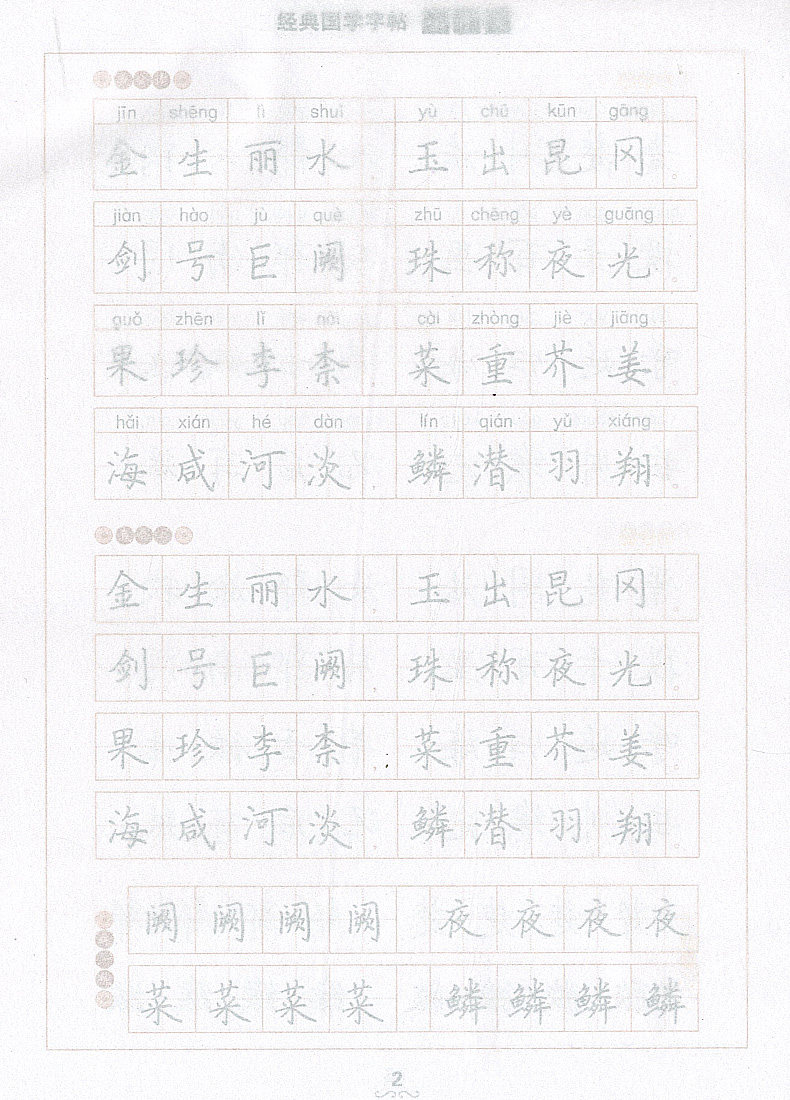 经典国学字帖
jīn shēng lì shuǐ yù chū kūn gāng
金生丽水，玉出昆冈。
jiàn hào jù què zhū chēng yè guāng
剑号巨阙，珠称夜光。
guǒ zhēn lǐ nài cài zhòng jiè jiāng
果珍李柰，菜重芥姜。
hǎi xián hé dàn lín qián yǔ xiáng
海咸河淡，鳞潜羽翔。
金生丽水，玉出昆冈。
剑号巨阙，珠称夜光。
果珍李柰，菜重芥姜。
海咸河淡，鳞潜羽翔。
阙阙阙阙 夜夜夜夜
菜菜菜菜 鳞鳞鳞鳞
2